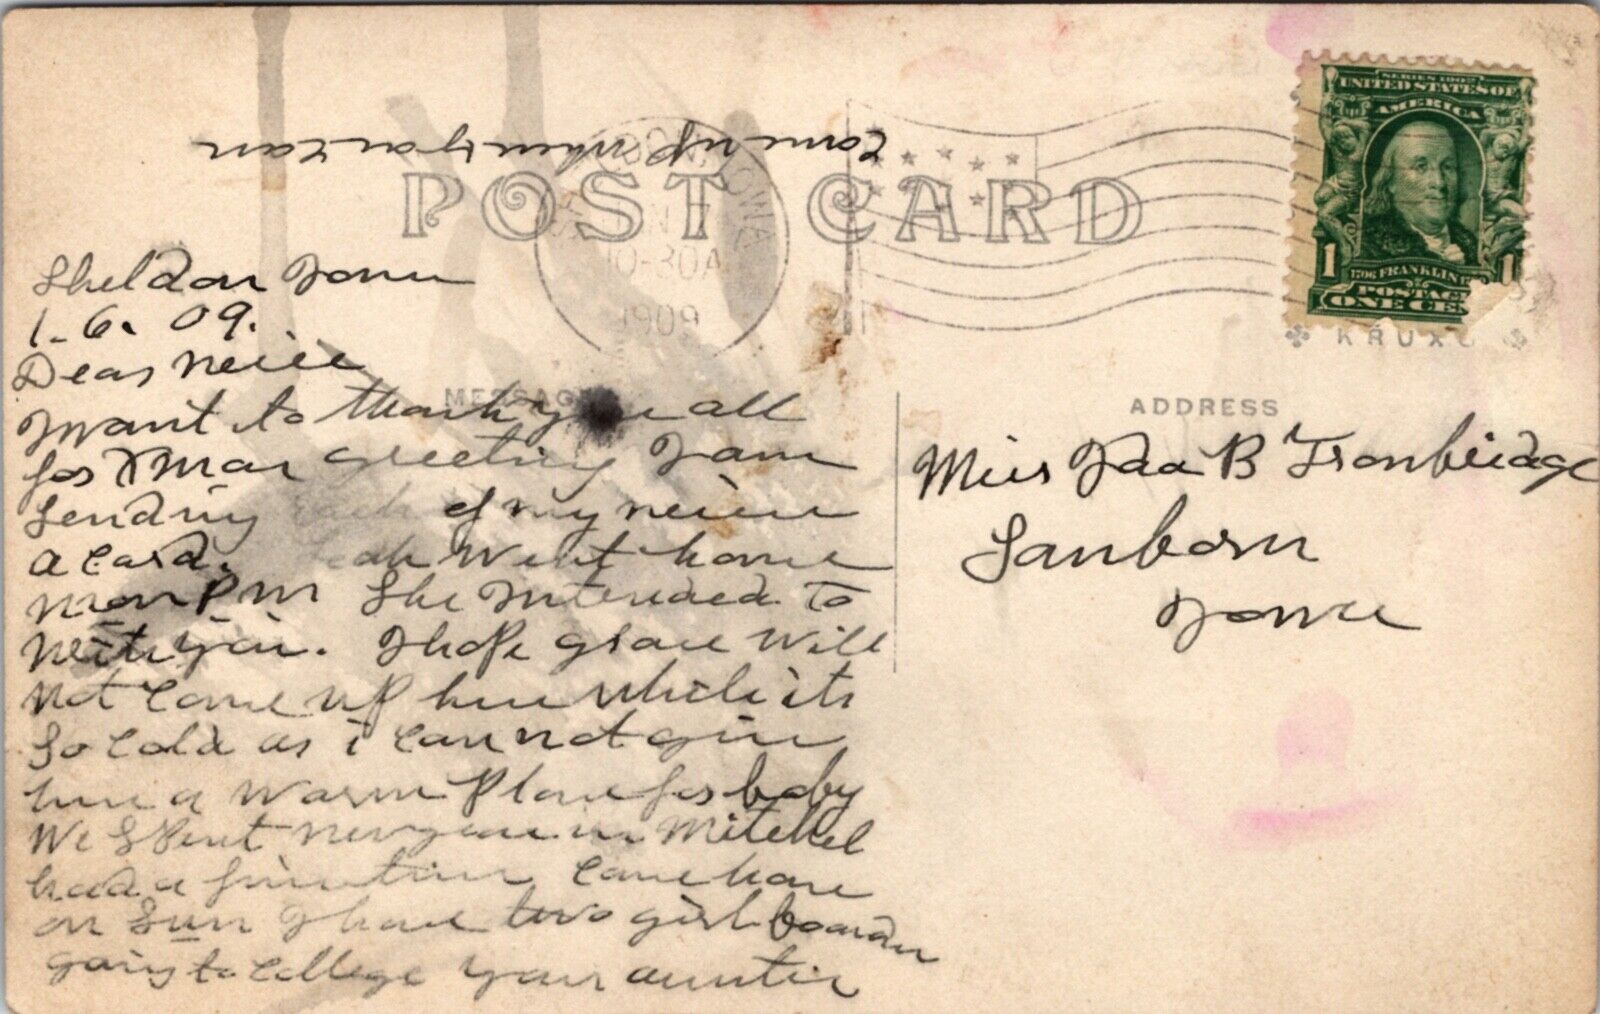 Come up when you can
POST CARD
SHELDON, IOWA
10-30A
1909
SERIES 1902
UNITED STATES OF
AMERICA
1706 FRANKLIN
1 1
POSTAGE
ONE CE
KRUXO
Sheldon Iowa
1-6-09.
Dear Neice
MESSAGE
I want to thank you all
for Xmas greeting I am
sending each of my neices
a card. Leah went home
Mon P M She Intended to
write you. I hope Grace will
not come up here while its
so cold as i can not give
her a warm place for baby
We spent newyears in Mitchel
had a fine time came home
on Sun I have two girl boarders
going to college your auntie
ADDRESS
Miss Ida B Tronbridge
Sanborn
Iowa